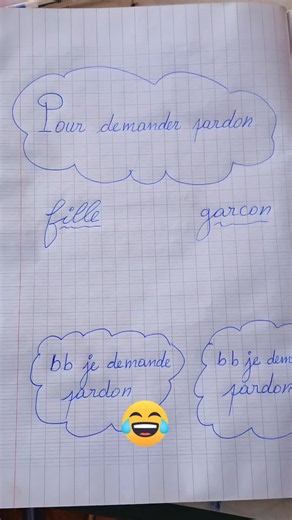 Pour demander pardon
fille
garcon
bb je demande
pardon
bb je dem
pardon